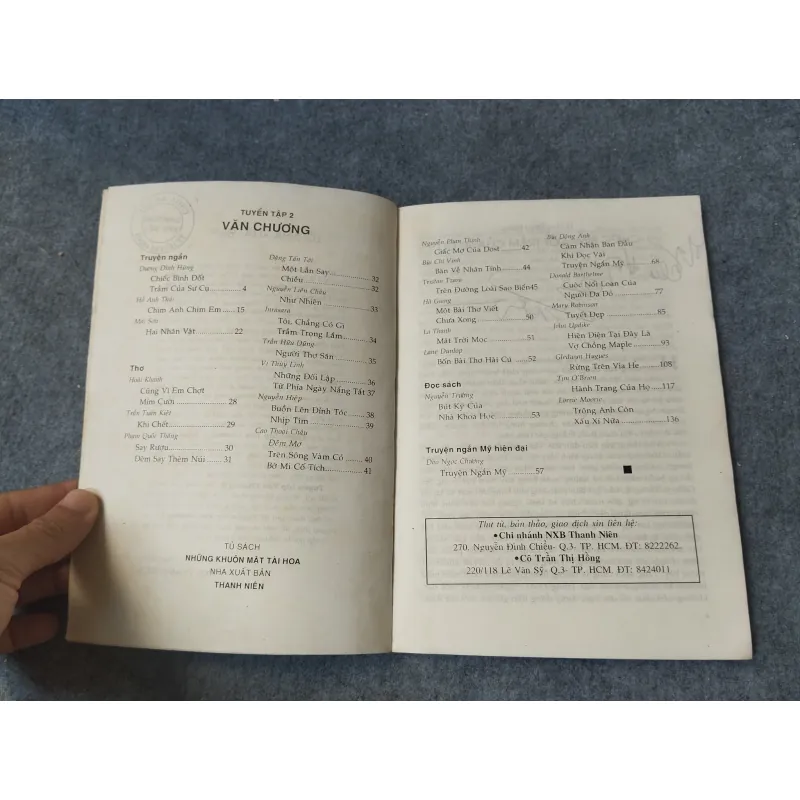 TUYỂN TẬP 2
VĂN CHƯƠNG
Truyện ngắn
Dương Đình Hùng
Chiếc Bình Đốt
Trầm Của Sư Cụ 4
Hồ Anh Thái
Chim Anh Chim Em 15
Mai Sơn
Hai Nhân Vật 22
Thơ
Hoài Khanh
Cũng Vì Em Chợt
Mỉm Cười 28
Trần Tuấn Kiệt
Khi Chết 29
Phạm Quốc Thăng
Say Rượu 30
Đêm Say Thêm Núi 31
Đặng Tấn Tới
Một Lần Say 32
Chiều 32
Nguyễn Liên Châu
Như Nhiên 33
Inrasara
Tôi, Chẳng Có Gì
Trầm Trọng Lắm 34
Trần Hữu Dũng
Người Thơ Săn 35
Vi Thùy Linh
Những Đối Lập 36
Từ Phía Ngày Nắng Tắt 37
Nguyễn Hiệp
Buồn Lên Đỉnh Tóc 38
Nhịp Tim 39
Cao Thoại Châu
Đêm Mơ
Trên Sông Vàm Cỏ 40
Bờ Mi Cổ Tích 41
TỦ SÁCH
NHỮNG KHUÔN MẶT TÀI HOA
NHÀ XUẤT BẢN
THANH NIÊN
Nguyễn Đạm Thanh
Giấc Mơ Của Dose 42
Bùi Chí Vinh
Bàn Về Nhân Tính 44
Tristian Tzara
Trên Đường Loài Sao Biển 45
Hà Quang
Một Bài Thơ Viết
Chưa Xong 50
La Thanh
Mặt Trời Mọc 51
Lane Dunlop
Bốn Bài Thơ Hài Cú 52
Đọc sách
Nguyễn Trường
Bút Ký Của
Nhà Khoa Học 53
Truyện ngắn Mỹ hiện đại
Đào Ngọc Chương
Truyện Ngắn Mỹ 57
Bùi Đông Anh
Cảm Nhận Ban Đầu
Khi Đọc Vài
Truyện Ngắn Mỹ 68
Donald Barthelme
Cuộc Nổi Loạn Của
Người Da Đỏ 77
Mary Robinson
Tuyết Đẹp 85
John Updike
Hiện Diện Tại Đây Là
Vợ Chồng Maple 93
Rừng Trên Vỉa Hè 108
Tim O'Brien
Hành Trang Của Họ 117
Lorrie Moorie
Trông Anh Còn
Xấu Xí Nữa 136
Thư từ, bản thảo, giao dịch xin liên hệ:
•Chi nhánh NXB Thanh Niên
270. Nguyễn Đình Chiểu- Q.3- TP. HCM. ĐT: 8222262
•Cô Trần Thị Hồng
220/118 Lê Văn Sỹ- Q.3- TP. HCM. ĐT: 8424011